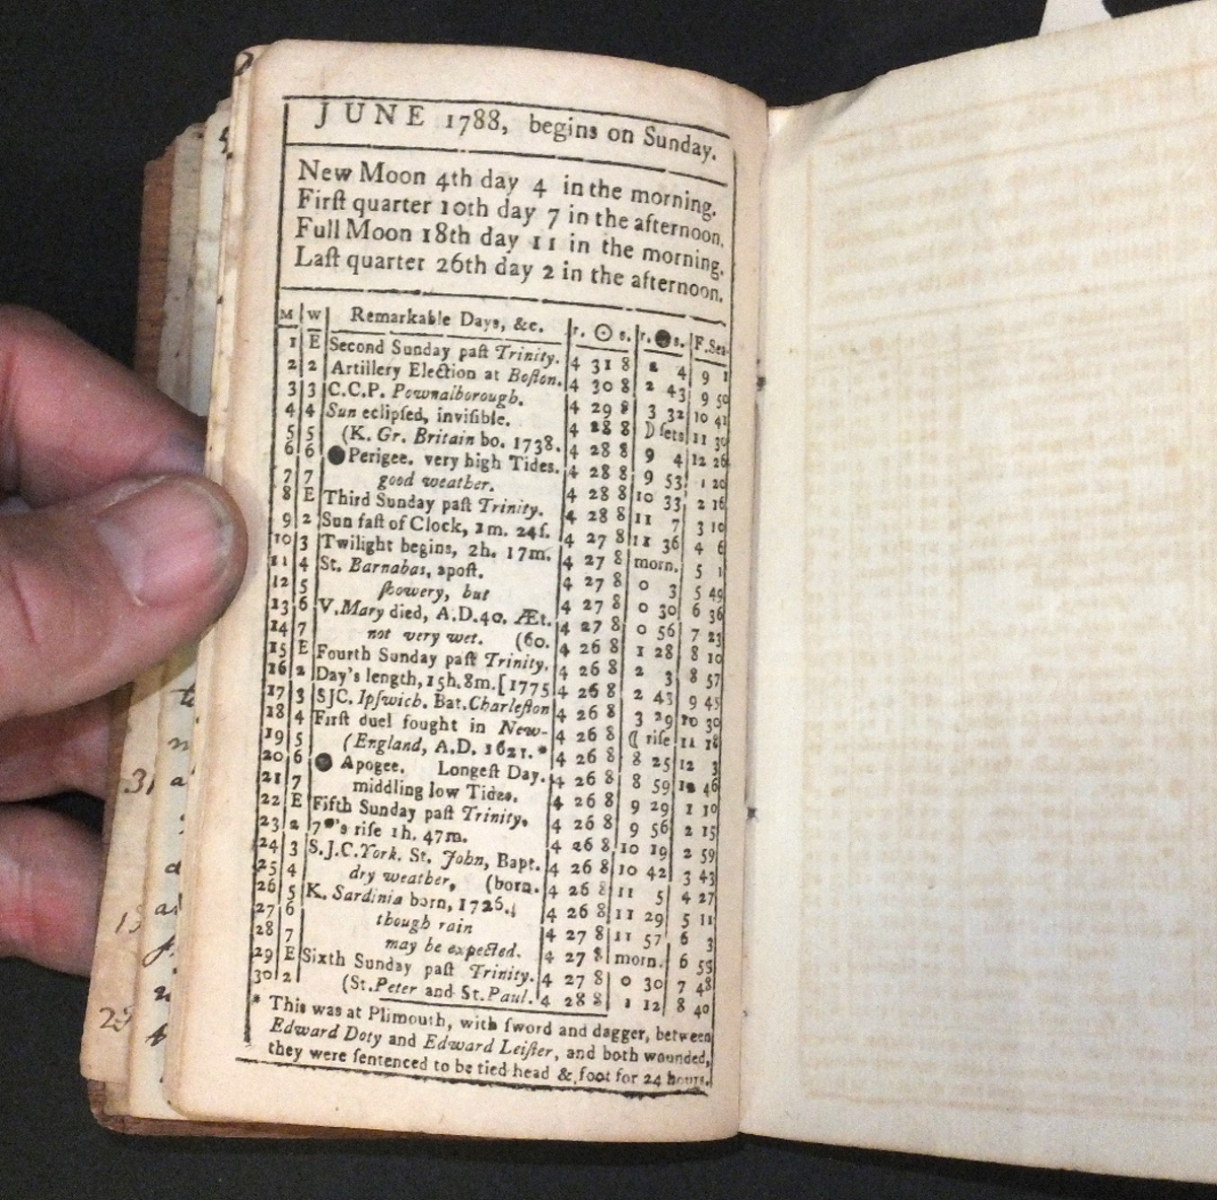 JUNE 1788, begins on Sunday.
New Moon 4th day 4 in the morning.
Firſt quarter 10th day 7 in the afternoon.
Full Moon 18th day 11 in the morning.
Laſt quarter 26th day 2 in the afternoon.
M W Remarkable Days, &c. r. ☉ s. r. ● s. F.Sea.
1 E Second Sunday paſt Trinity. 4 31 8 2 4 9 1
2 2 Artillery Election at Boſton. 4 30 8 2 43 9 50
3 3 C.C.P. Pownalborough. 4 29 8 3 32 10 41
4 4 Sun eclipſed, inviſible. 4 28 8 ☽ ſets 11 30
5 5 (K. Gr. Britain bo. 1738. 4 28 8 9 4 12 26
6 6 ●Perigee. very high Tides. 4 28 8 9 53 1 20
7 7 good weather. 4 28 8 10 33 2 16
8 E Third Sunday paſt Trinity. 4 28 8 11 7 3 10
9 2 Sun faſt of Clock, 1m. 24ſ. 4 27 8 11 36 4 6
10 3 Twilight begins, 2h. 17m. 4 27 8 morn. 5 1
11 4 St. Barnabas, apoſt. 4 27 8 0 3 5 49
12 5 ſhowery, but 4 27 8 0 30 6 36
13 6 V.Mary died, A.D.40. Æt. 4 27 8 0 56 7 23
14 7 not very wet. (60. 4 26 8 1 28 8 10
15 E Fourth Sunday paſt Trinity. 4 26 8 2 3 8 57
16 2 Day's length, 15h.8m.[1775 4 26 8 2 43 9 45
17 3 SJC. Ipſwich. Bat.Charleſton 4 26 8 3 29 10 30
18 4 Firſt duel fought in New- 4 26 8 ☾ riſe 11 18
19 5 (England, A.D. 1621.* 4 26 8 8 25 12 3
20 6 ● Apogee. Longeſt Day. 4 26 8 8 59 12 46
21 7 middling low Tides. 4 26 8 9 29 1 30
22 E Fifth Sunday paſt Trinity. 4 26 8 9 56 2 15
23 2 7*'s riſe 1h. 47m. 4 26 8 10 19 2 59
24 3 S.J.C.York. St. John, Bapt. 4 26 8 10 42 3 43
25 4 dry weather, (born. 4 26 8 11 5 4 27
26 5 K. Sardinia born, 1726. 4 26 8 11 29 5 11
27 6 though rain 4 27 8 11 57 6 3
28 7 may be expected. 4 27 8 morn. 6 55
29 E Sixth Sunday paſt Trinity. 4 27 8 0 30 7 48
30 2 (St.Peter and St.Paul. 4 28 8 1 12 8 40
* This was at Plimouth, with ſword and dagger, between
Edward Doty and Edward Leiſter, and both wounded,
they were ſentenced to be tied head & foot for 24 hours.
31
15
25